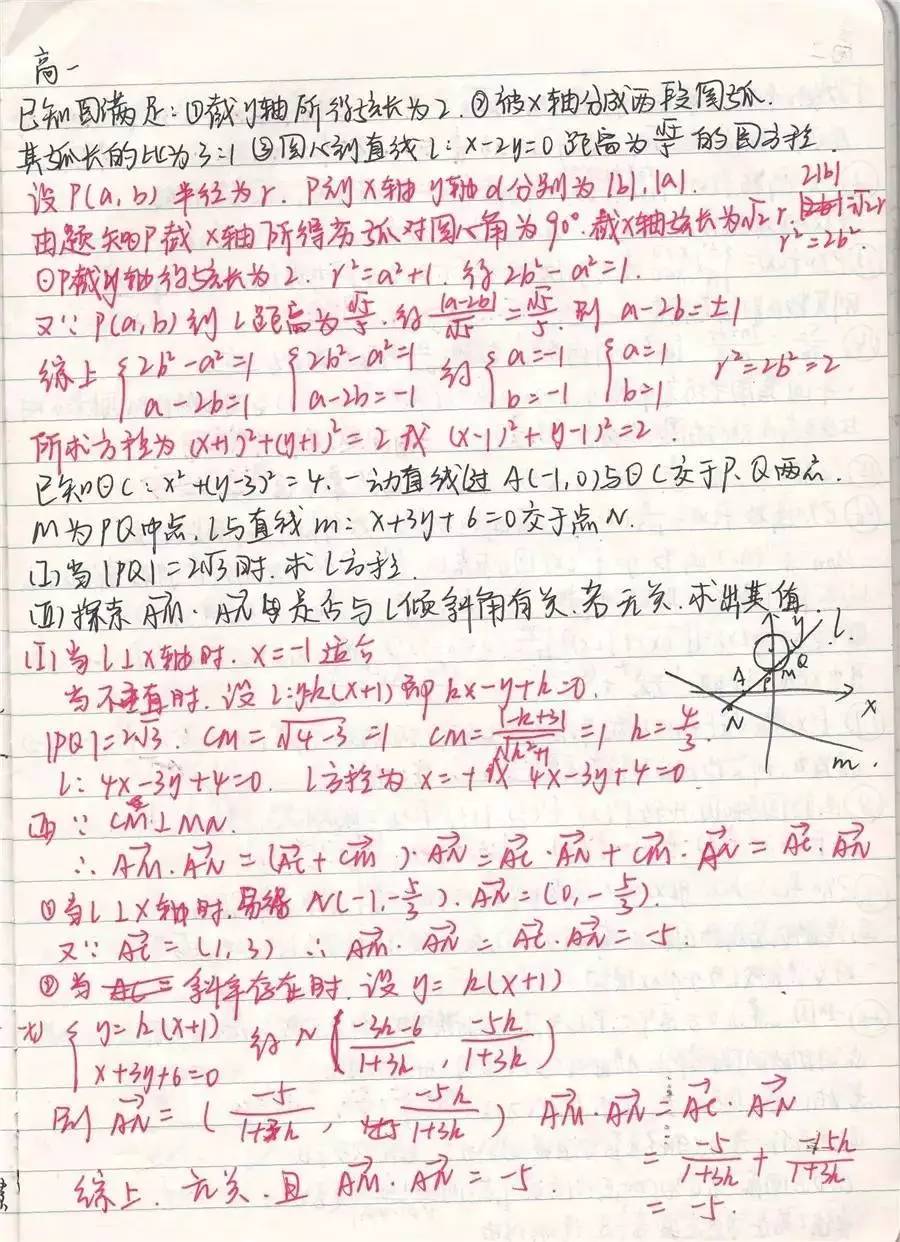 高一
已知圆满足:①截y轴所得弦长为2.②被x轴分成两段圆弧.
其弧长的比为3:1 ③圆心到直线l:x-2y=0距离为√5/5的圆方程.
设P(a,b) 半径为r. P到x轴y轴d分别为|b|,|a|.
由题知⊙P截x轴所得劣弧对圆心角为90°.截x轴弦长为√2r. 2|b|=√2r
r²=2b².
⊙P截y轴得弦长为2. r²=a²+1. 得2b²-a²=1.
又∵P(a,b)到l距离为√5/5.得|a-2b|/√5=√5/5.则 a-2b=±1
综上{2b²-a²=1 a-2b=1 {2b²-a²=1 a-2b=-1 得{a=-1 b=-1 {a=1 b=1 r²=2b²=2
所求方程为(x+1)²+(y+1)²=2或(x-1)²+(y-1)²=2.
已知⊙C:x²+(y-3)²=4.一动直线l过A(-1,0)与⊙C交于P.Q两点.
M为PQ中点.l与直线m:x+3y+6=0交于点N.
(I)当|PQ|=2√3时.求l方程.
(II)探索AM·AN是否与l倾斜角有关.若无关.求出其值.
(I)当l⊥x轴时.x=-1适合
当不垂直时.设l:y=k(x+1)即kx-y+k=0.
|PQ|=2√3∴CM=√4-3=1 CM=|-k+3|/√k²+1=1 k=4/3.
l:4x-3y+4=0. l方程为x=-1或4x-3y+4=0.
y l. A P M Q x N m.
(II)∵CM⊥MN.
∴AM·AN=(AC+CM)·AN=AC·AN+CM·AN=AC·AN
①当l⊥x轴时.易得N(-1,-5/3).AN=(0,-5/3).
又∵AC=(1,3) ∴AM·AN=AC·AN=-5.
②当斜率存在时.设y=k(x+1)
{y=k(x+1) x+3y+6=0 得N((-3k-6)/(1+3k), -5k/(1+3k))
则AN=(-5/(1+3k), -5k/(1+3k)) AM·AN=AC·AN
=-5/(1+3k)+-15k/(1+3k)
综上.无关.且AM·AN=-5.
=-5.